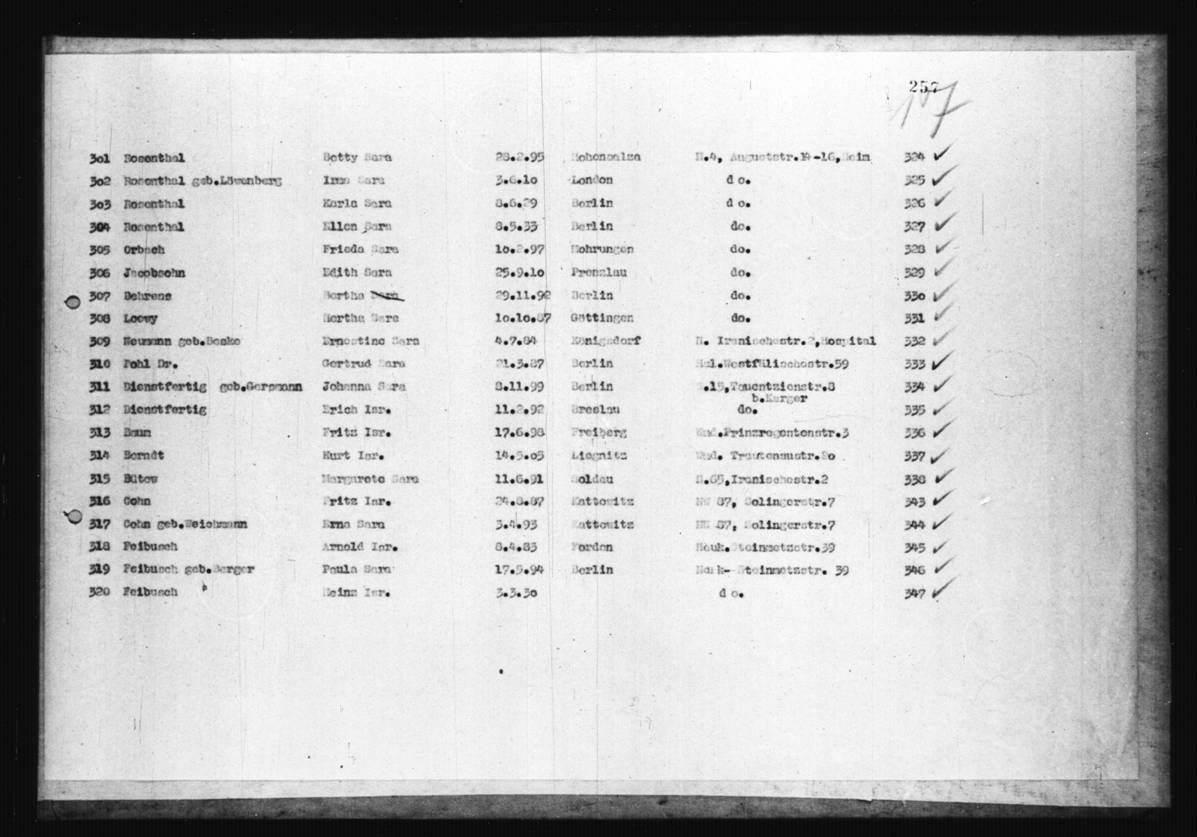 257
107
3o1 Rosenthal Betty Sara 28.2.95 Hohensalza N.4, Auguststr.14-16,Heim 324 ✓
3o2 Rosenthal geb.Löwenberg Irma Sara 3.6.1o London d o. 325 ✓
3o3 Rosenthal Karla Sara 8.6.29 Berlin d o. 326 ✓
3o4 Rosenthal Ellen Sara 8.5.33 Berlin do. 327 ✓
3o5 Orbach Frieda Sara 1o.2.97 Mohrungen do. 328 ✓
3o6 Jacobsohn Edith Sara 25.9.1o Prenzlau do. 329 ✓
3o7 Behrens Bertha Sara 29.11.92 Berlin do. 33o ✓
3o8 Loewy Hertha Sara 1o.1o.87 Göttingen do. 331 ✓
3o9 Neumann geb. Ernestine Sara 4.7.84 Königsdorf N. Iranischestr.2,Hospital 332 ✓
31o Pohl Dr. Gertrud Sara 21.3.87 Berlin Hal.Westfälischestr.59 333 ✓
311 Dienstfertig geb. Johanna Sara 8.11.99 Berlin W.15,Tauentzienstr.8 334 ✓
b.Karger
312 Dienstfertig Erich Isr. 11.2.92 Breslau do. 335 ✓
313 Fritz Isr. 17.6.98 Freiberg Wmd.Prinzregentenstr.3 336 ✓
314 Berndt Kurt Isr. 14.5.o5 Liegnitz Wmd. Trautenaustr.2o 337 ✓
315 Bütow Margarete Sara 11.6.91 Soldau N.65,Iranischestr.2 338 ✓
316 Cohn Fritz Isr. 24.8.87 Kattowitz NW 87, Solingerstr.7 343 ✓
317 Cohn geb.Weichmann Erna Sara 3.4.93 Kattowitz NW 87, Solingerstr.7 344 ✓
318 Feibusch Arnold Isr. 8.4.83 Fordon Neuk.Steinmetzstr.39 345 ✓
319 Feibusch geb.Berger Paula Sara 17.5.94 Berlin Neuk- Steinmetzstr. 39 346 ✓
32o Feibusch Heinz Isr. 3.3.3o d o. 347 ✓